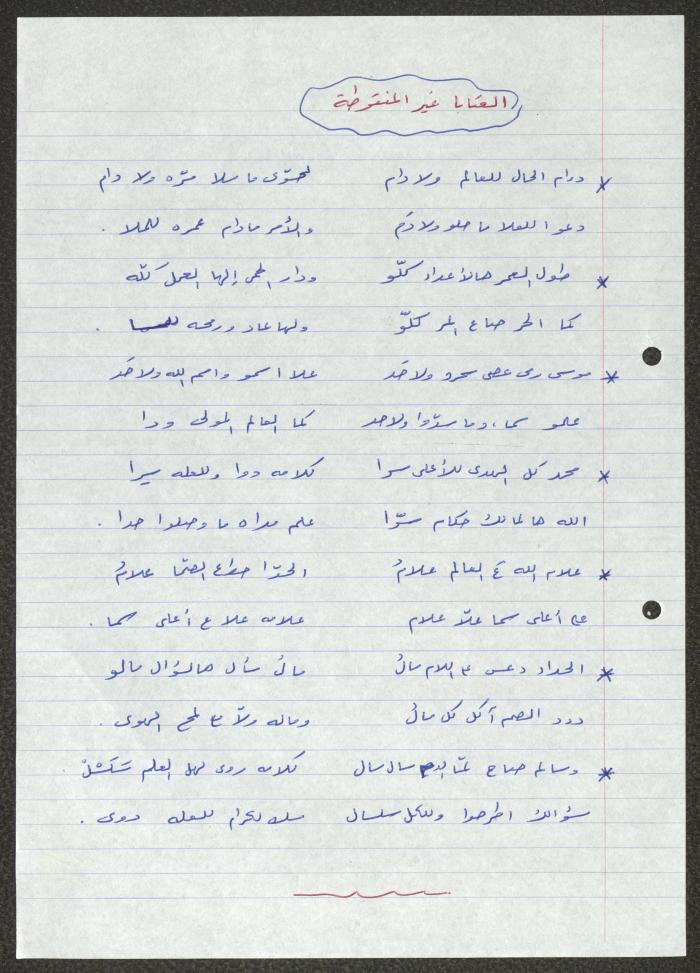 العتابا غير المنقوطة
* دوام الحال للعالم ولا دام لحوّى ما سلا مرّه ولا دام
دعوا للعلا ما حلو ولا دَم والأمر ما دام عمره للملا .
* طول العمر هالأعداد كلّو ودار الحمى إلها العمل كلّه
كما الحر صاع المر كلّو ولها عاد ورمحه
* موسى رمى عصى سحرو ولا حَد علا اسمو واسم الله ولا حَد
علمو سما، وما سدّوا ولا حد كما العالم المولى ودا
* محمد كل الهدى للأعلى سرا كلامه دوا وللعله سيرا
الله هالمالك حكام سوّا علم مداه ما وصلوا حدا .
* علام الله ع العالم علامُ الحدّا الصمّا علامُ
ع أعلى سما علّا علام علامه علا ع أعلى سما .
* الحداد دعس ع اللام مالُ مالُ سأل هالسؤال مالو
درر الصم آكل كل مالُ وماله ولّا ع لمح الهوى .
* وسالم صاح لمّا الدم سال سال كلامه روى لهل العلم سَكسَلْ .
سؤالك اطرحوا وللكل سلسال سله لكرام للعله دوى .